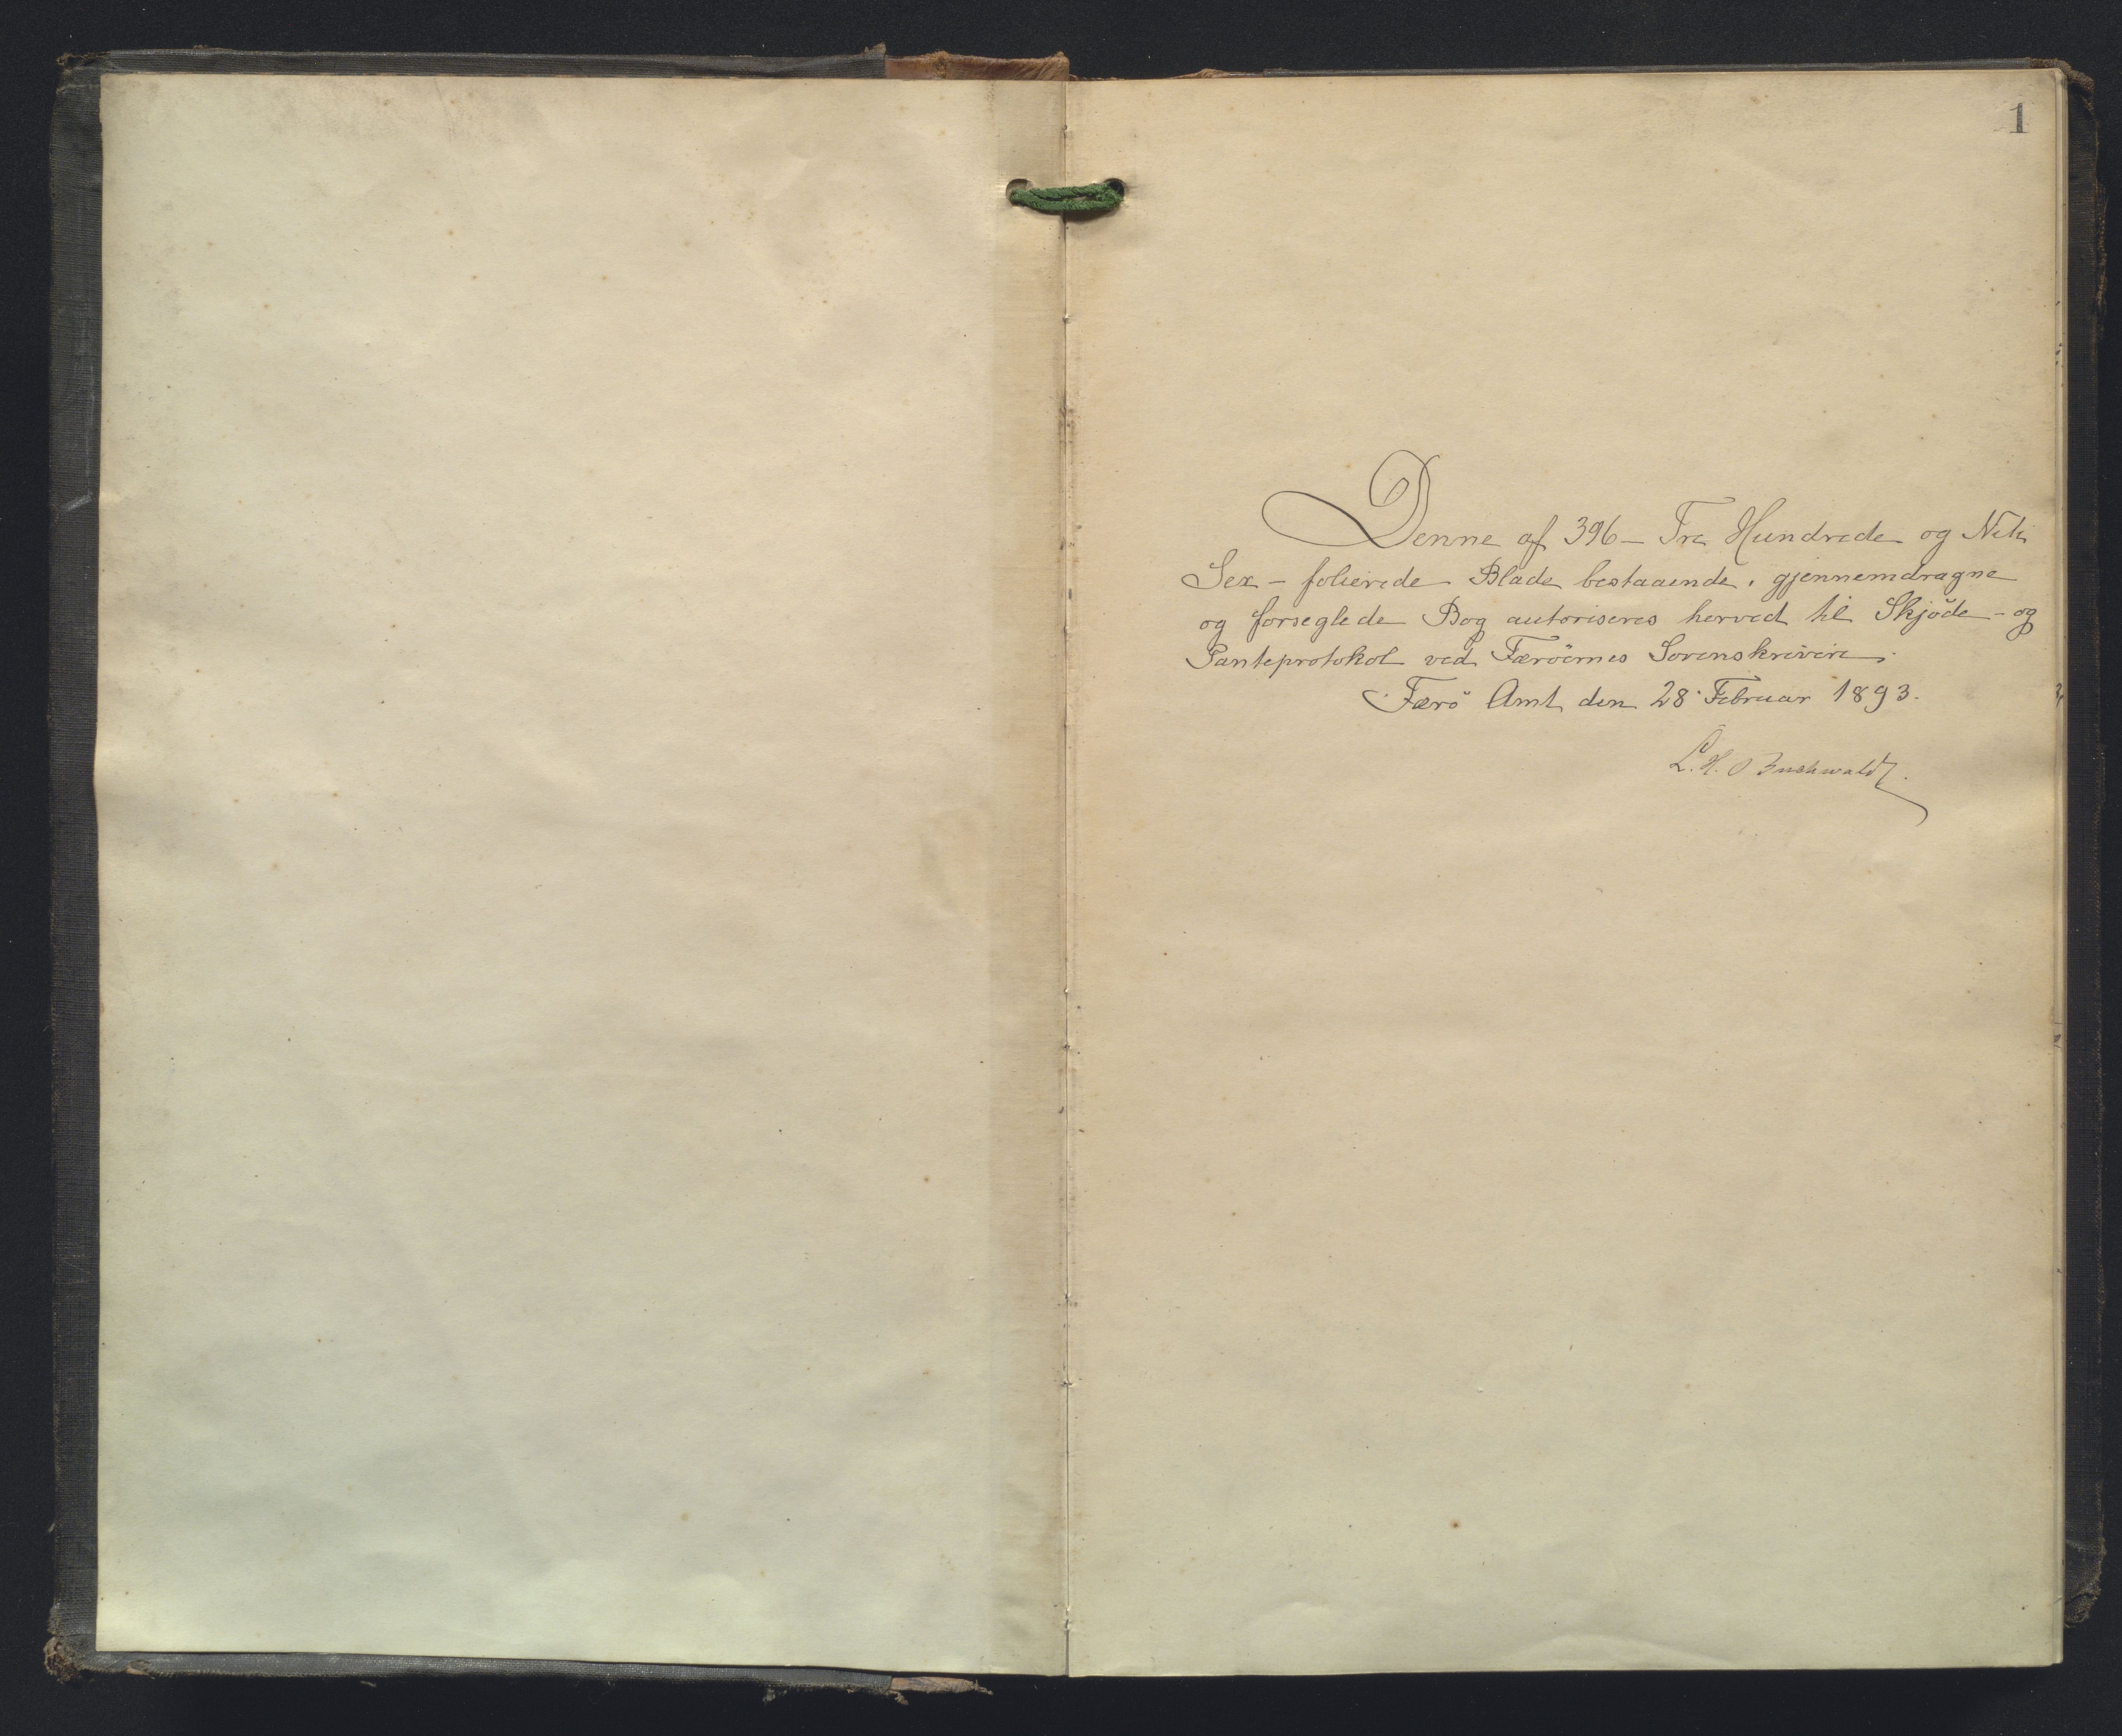 1
Denne af 396 - Tre Hundrede og Niti
Sex - folierede Blade bestaaende, gjennemdragne
og forseglede Bog autoriseres herved til Skjöde - og
Panteprotokol ved Færöernes Sorenskriveri.
Færö Amt den 28 Februar 1893.
L. H. Buchwaldt.